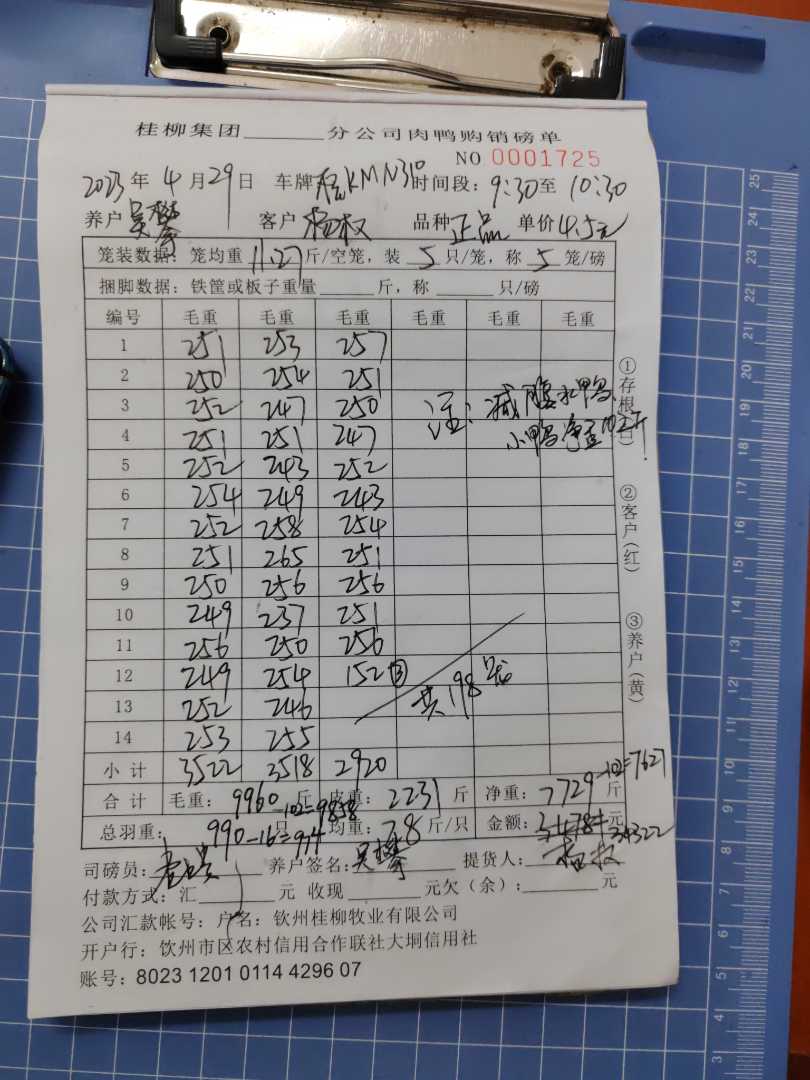 桂柳集团______分公司肉鸭购销磅单
NO 0001725
2023年 4月29日 车牌 KMN310 时间段：9:30至 10:30
养户 吴攀 客户 杨权 品种 正品 单价 4.5元
笼装数据：笼均重 11.27 斤/空笼，装 5 只/笼，称 5 笼/磅
捆脚数据：铁筐或板子重量______斤，称______只/磅
编号 毛重 毛重 毛重 毛重 毛重 毛重
1 251 253 257
2 250 254 251
3 252 247 250
4 251 251 247
5 252 243 252
6 254 249 243
7 252 258 254
8 251 265 251
9 250 256 256
10 249 237 251
11 256 250 256
12 249 254 152 ③
13 252 246
14 253 255
注：减 水鸭、
小鸭净重102斤
共198笼
小计 3522 3518 2920
合计 毛重：9960斤 -102=9858 皮重：2231斤 净重：7729斤 -102=7627
总羽重：990只 -16=974 均重：7.8斤/只 金额：34784元 34322
司磅员： 养户签名：吴攀 提货人：杨权
付款方式：汇______元 收现______元欠（余）：______元
公司汇款帐号：户名：钦州桂柳牧业有限公司
开户行：钦州市区农村信用合作联社大垌信用社
账号：8023 1201 0114 4296 07
①存根（白）
②客户（红）
③养户（黄）
25
24
23
22
21
20
19
18
17
16
15
14
13
12
11
10
9
8
7
6
5
4
3